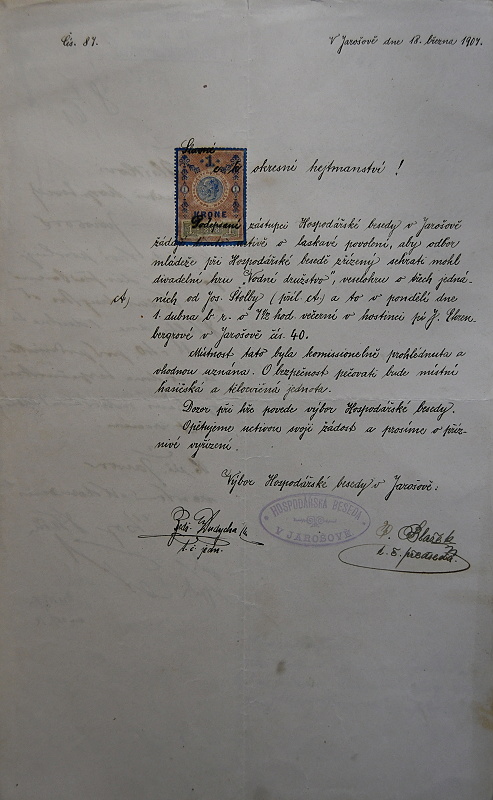 Čís. 87.
V Jarošově dne 18. března 1907.
Slavné
c. k. okresní hejtmanství!
1
KRONE
Podepsaní zástupci Hospodářské besedy v Jarošově
žádají o laskavé povolení, aby odbor
mládeže při Hospodářské besedě zřízený sehráti mohl
divadelní hru „Vodní družstvo", veselohru o třech jedná-
A)
ních od Jos. Štolby (příl. A) a to v pondělí dne
1. dubna b. r. o 7½ hod. večerní v hostinci pí J.
bergrové v Jarošově čís. 40.
Místnost tato byla komisionelně prohlédnuta a
vhodnou uznána. O bezpečnost pečovati bude místní
hasičská a tělocvičná jednota.
Dozor při hře povede výbor Hospodářské besedy.
Opětujeme uctivou svoji žádost a prosíme o příz-
nivé vyřízení.
Výbor Hospodářské besedy v Jarošově:
HOSPODÁŘSKÁ BESEDA
V JAROŠOVĚ
t. č. jedn.
t. č. předseda.